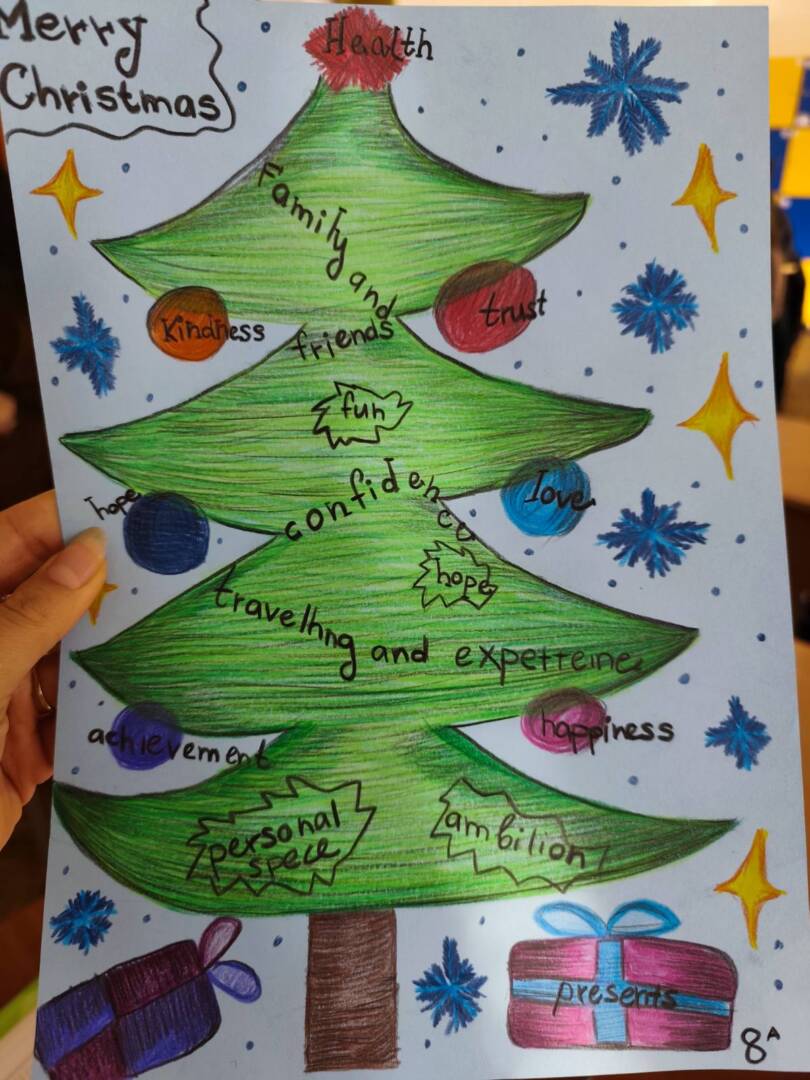 Merry
Christmas
Health
Family and
friends
Kindness
trust
fun
hope
love
confidence
hope
travelling and expetteine
achievement
happiness
personal
spece
ambilion
presents
8A